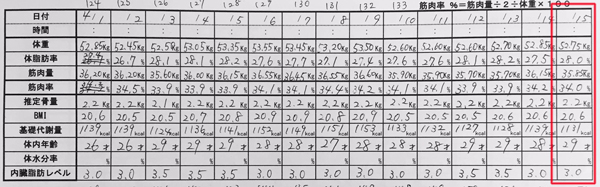 124 125 126 127 128 129 130 131 132 133 筋肉率 %=筋肉量÷2÷体重×100
日付 4/1 1/2 1/3 1/4 1/5 1/6 1/7 1/8 1/9 1/10 1/11 1/12 1/13 1/14 1/15
時間 : : : : : : : : : : : : : : :
体重 52.85Kg 52.45Kg 52.85Kg 53.05Kg 53.35Kg 53.55Kg 53.45Kg 53.20Kg 53.50Kg 52.60Kg 52.60Kg 52.60Kg 52.70Kg 52.85Kg 52.75Kg
体脂肪率 26.7% 28.1% 28.2% 27.6% 27.7% 27.7% 27.1% 27.4% 27.6% 27.6% 28.1% 28.2% 27.5% 28.0%
筋肉量 36.20Kg 36.20Kg 35.60Kg 36.00Kg 36.35Kg 36.55Kg 36.45Kg 36.55Kg 36.60Kg 35.90Kg 35.90Kg 35.70Kg 35.70Kg 36.15Kg 35.85Kg
筋肉率 34.5% 33.9% 33.9% 34.1% 34.1% 34.1% 34.1% 33.9% 33.9% 34.2% 34.0%
推定骨量 2.2Kg 2.1Kg 2.2Kg 2.2Kg 2.2Kg 2.2Kg 2.2Kg 2.2Kg 2.2Kg 2.2Kg 2.2Kg
BMI 20.6 20.5 20.7 20.8 20.9 20.9 20.8 20.9 20.5 20.5 20.5 20.6 20.6 20.6
基礎代謝量 1139kcal 1139kcal 1124kcal 1136kcal 1141kcal 1152kcal 1149kcal 1151kcal 1153kcal 1133kcal 1132kcal 1127kcal 1128kcal 1139kcal 1131kcal
体内年齢 26才 26才 29才 29才 28才 28才 28才 27才 28才 28才 28才 29才 29才 28才 29才
体水分率 % % % % % % % % % % % % % % %
内臓脂肪レベル 3.0 3.0 3.5 3.5 3.0 3.0 3.0 3.0 3.0 3.0 3.0 3.5 3.5 3.0 3.0